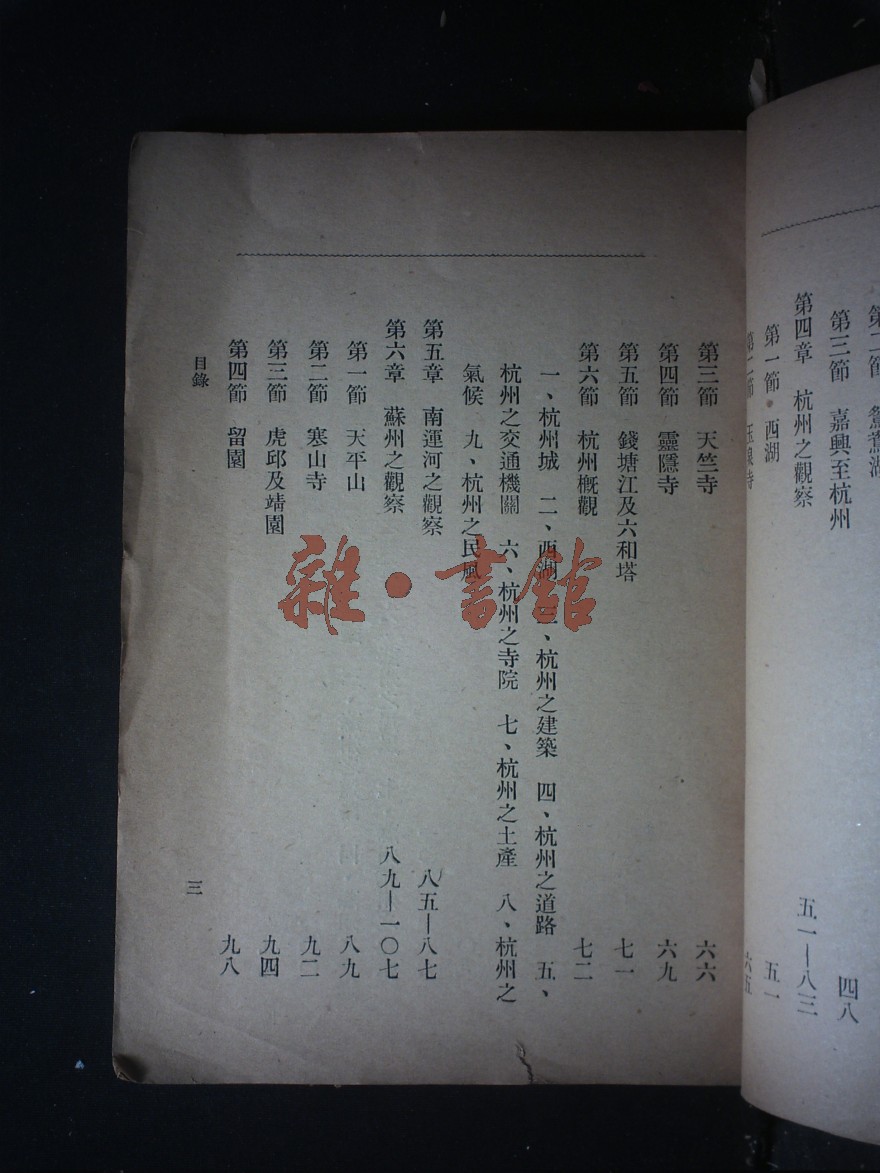 第三節 嘉興至杭州 四八
第四章 杭州之觀察 五一—八三
第一節 西湖 五一
第二節 玉泉寺 六五
第三節 天竺寺 六六
第四節 靈隱寺 六九
第五節 錢塘江及六和塔 七一
第六節 杭州概觀 七二
一、杭州城 二、西湖 三、杭州之建築 四、杭州之道路 五、
杭州之交通機關 六、杭州之寺院 七、杭州之土產 八、杭州之
氣候 九、杭州之民風
第五章 南運河之觀察 八五—八七
第六章 蘇州之觀察 八九—一〇七
第一節 天平山 八九
第二節 寒山寺 九二
第三節 虎邱及靖園 九四
第四節 留園 九八
目錄 三
雜·書館